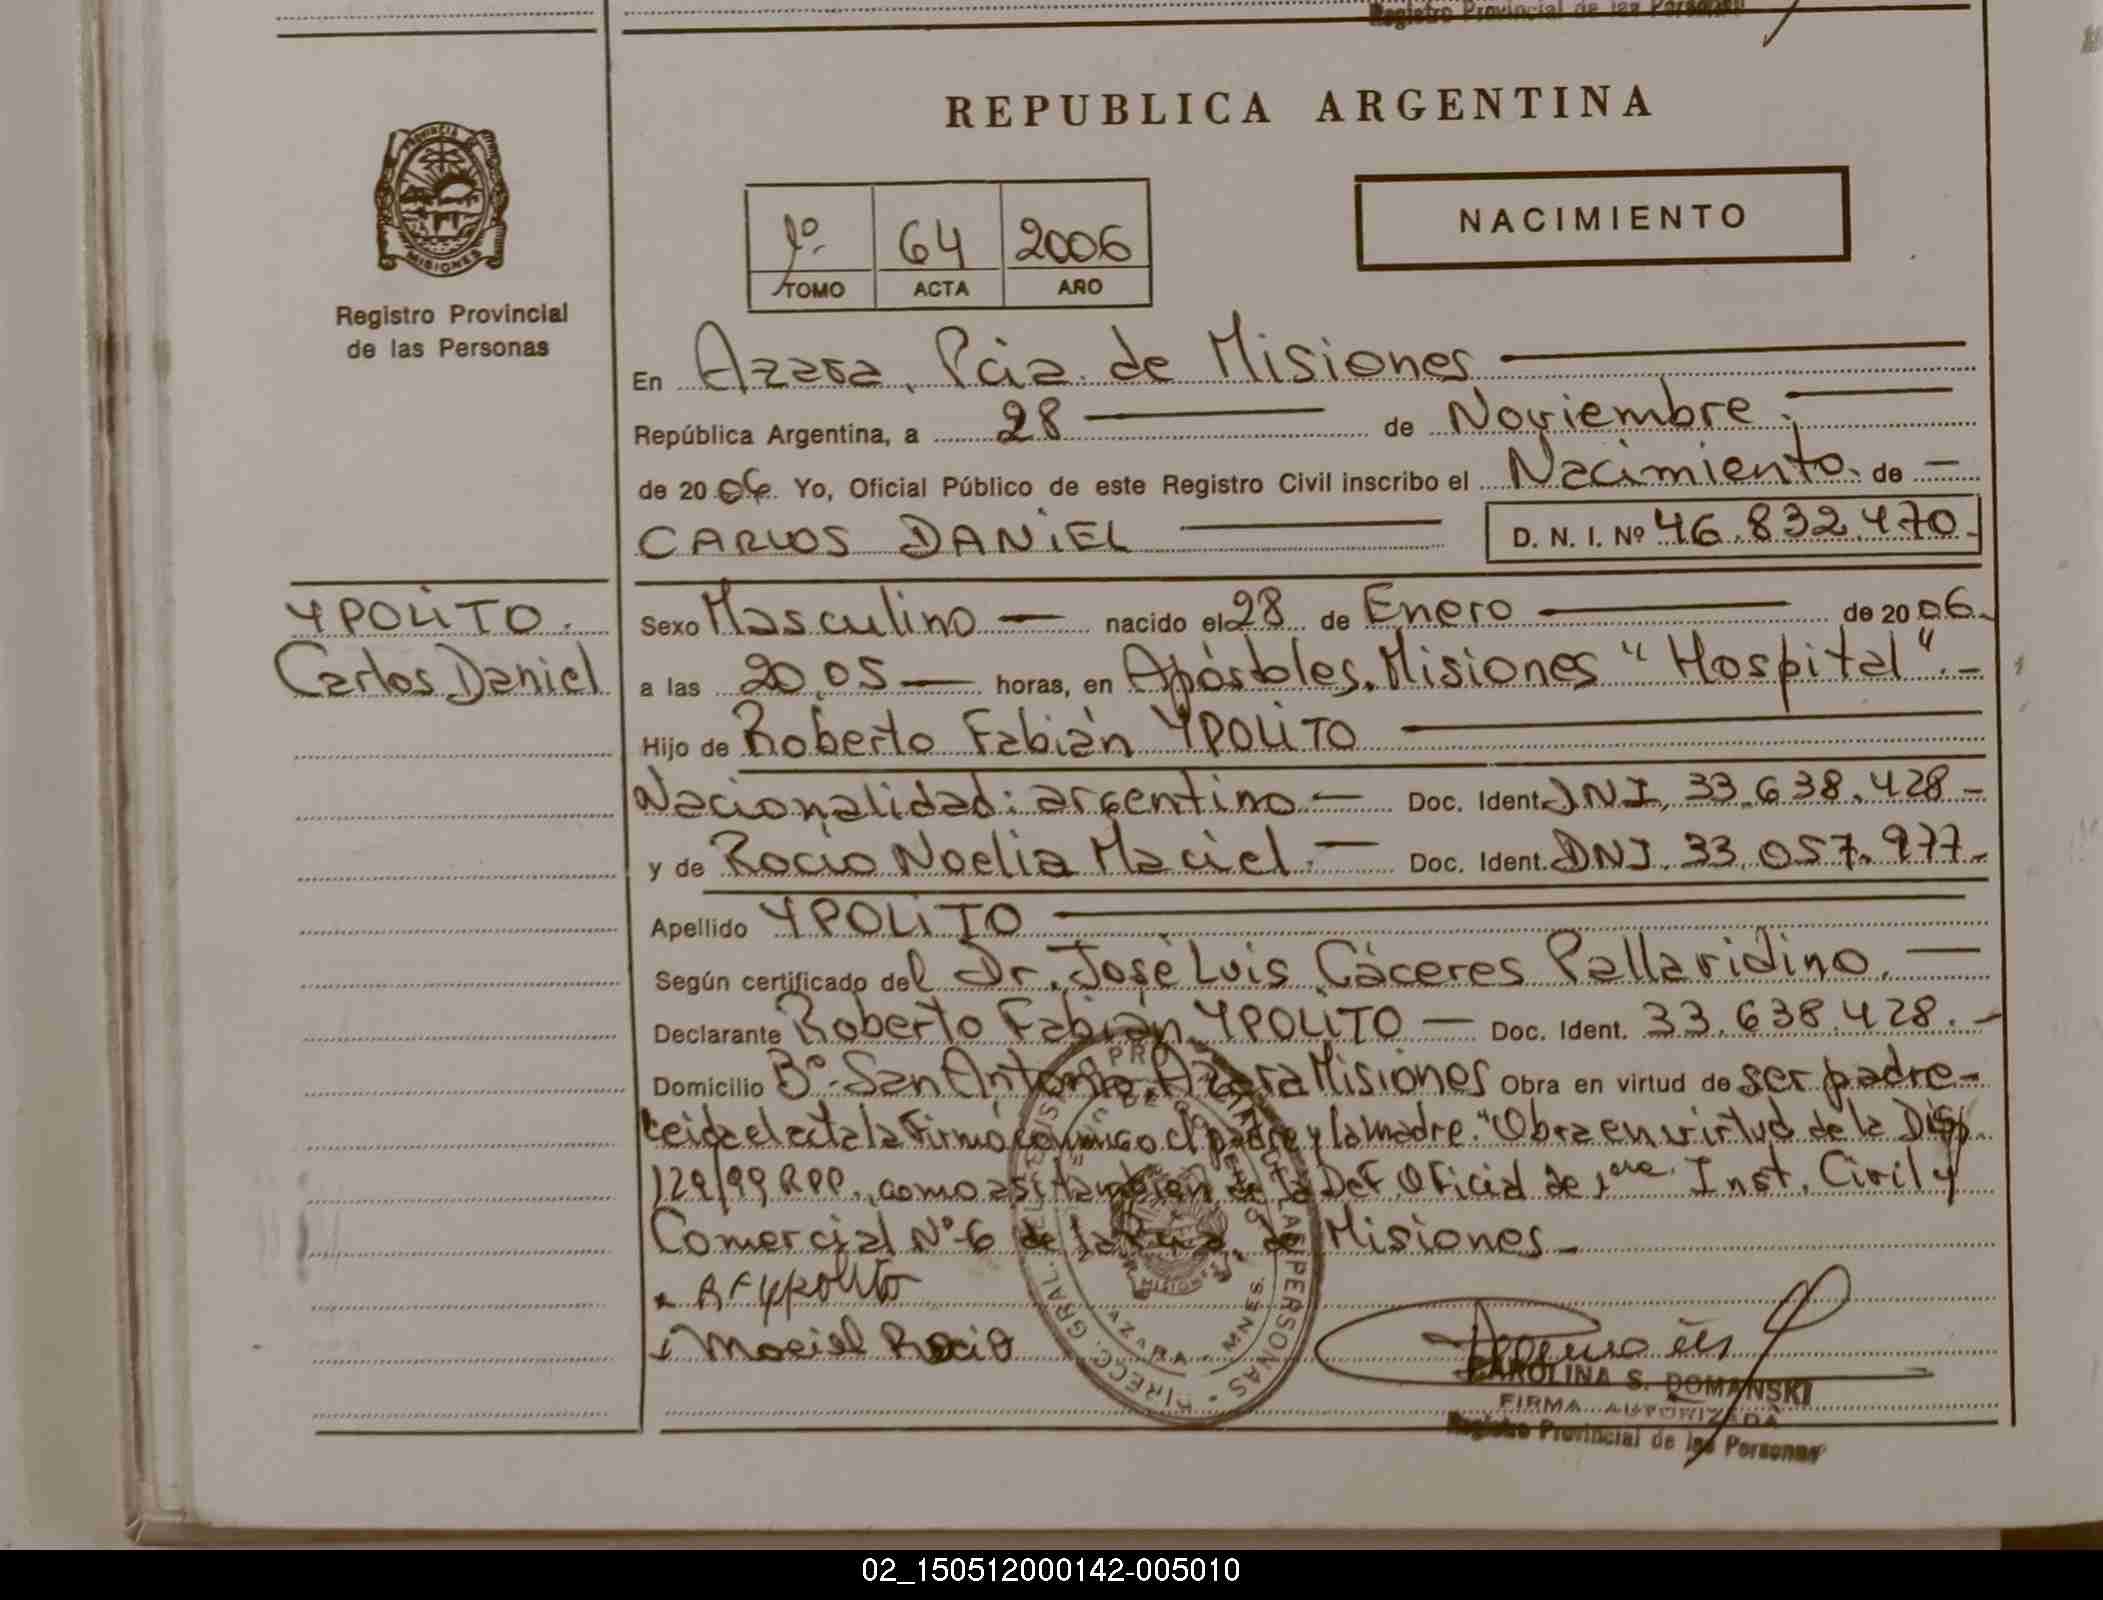 Registro Provincial de las Personas
REPUBLICA ARGENTINA
PROVINCIA DE
MISIONES
Registro Provincial
de las Personas
1º 64 2006
TOMO ACTA AÑO
NACIMIENTO
En Azara, Pcia. de Misiones
República Argentina, a 28 de Noviembre.
de 2006. Yo, Oficial Público de este Registro Civil inscribo el Nacimiento. de
CARLOS DANIEL D. N. I. Nº 46.832.470.
YPOLITO.
Carlos Daniel
Sexo Masculino nacido el 28 de Enero de 2006.
a las 20,05 horas, en Apóstoles, Misiones "Hospital".-
Hijo de Roberto Fabián YPOLITO
Nacionalidad: argentino Doc. Ident. DNI. 33.638.428-
y de Rocio Noelia Maciel. Doc. Ident. DNI. 33.057.977-
Apellido YPOLITO
Según certificado del Dr. José Luis Cáceres Pallaridino.
Declarante Roberto Fabián YPOLITO Doc. Ident. 33.638.428.-
Domicilio Bº. San Antonio, Azara Misiones Obra en virtud de ser padre-
Leida el acta la firmó conmigo el padre y la madre. "Obra en virtud de la Disp
129/99 RPP., como asi tambien de la Def. Oficial de 1era Inst. Civil y
Comercial Nº 6 de la Pcia. de Misiones-
R F Ypolito
Maciel Rocio
DIRECC. GRAL. DE LAS PERSONAS
MISIONES
AZARA - MNES.
CAROLINA S. DOMANSKI
FIRMA AUTORIZADA
Registro Provincial de las Personas
02_150512000142-005010